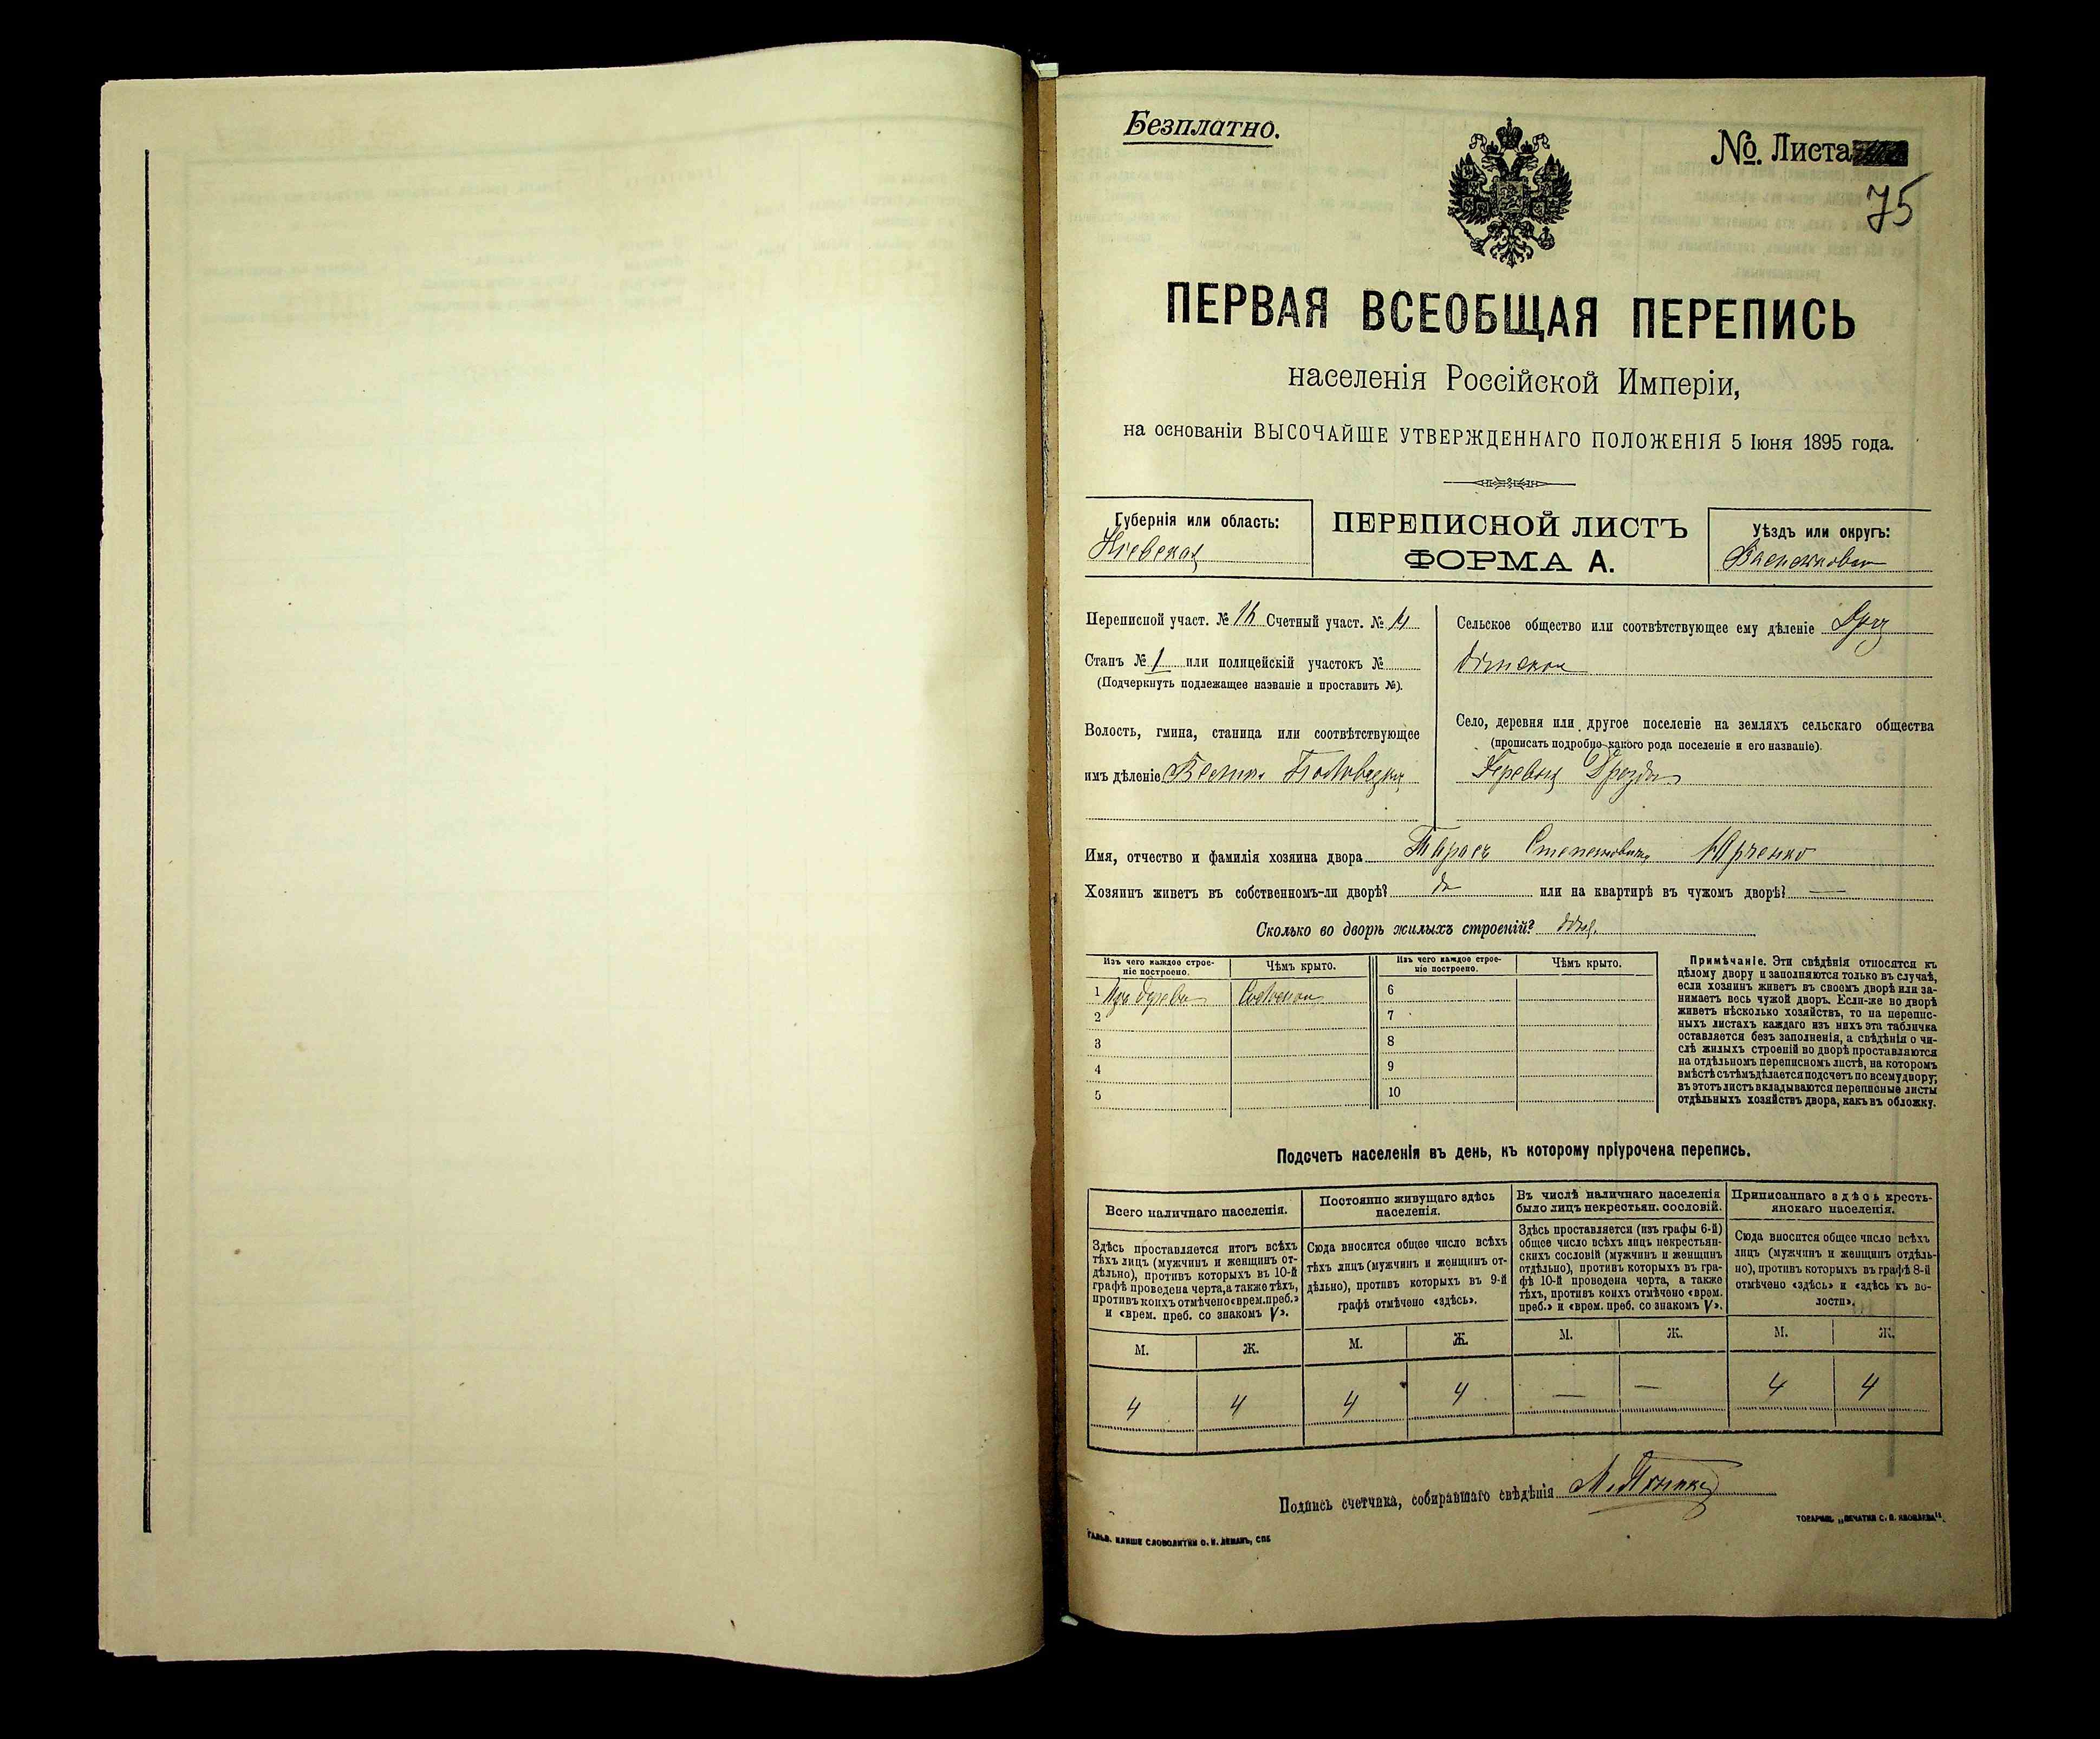 Безплатно.
№. Листа
75
ПЕРВАЯ ВСЕОБЩАЯ ПЕРЕПИСЬ
населенія Россійской Имперіи,
на основаніи ВЫСОЧАЙШЕ УТВЕРЖДЕННАГО ПОЛОЖЕНІЯ 5 Іюня 1895 года.
Губернія или область:
Кіевская
ПЕРЕПИСНОЙ ЛИСТЪ
ФОРМА А.
Уѣздъ или округъ:
Переписной участ. № Счетный участ. №
Станъ № 1 или полицейскій участокъ №
(Подчеркнуть подлежащее названіе и проставить №).
Волость, гмина, станица или соотвѣтствующее
имъ дѣленіе
Сельское общество или соотвѣтствующее ему дѣленіе Дроз
довское
Село, деревня или другое поселеніе на земляхъ сельскаго общества
(прописать подробно какого рода поселеніе и его названіе).
Деревня Дрозды
Имя, отчество и фамилія хозяина двора Тарасъ Степановичъ Юрченко
Хозяинъ живетъ въ собственномъ-ли дворѣ? да или на квартирѣ въ чужомъ дворѣ? —
Сколько во дворѣ жилыхъ строеній?
Изъ чего каждое строе-
ніе построено.
Чѣмъ крыто.
Изъ чего каждое строе-
ніе построено.
Чѣмъ крыто.
1 Изъ дерева Соломою
2
3
4
5
6
7
8
9
10
Примѣчаніе. Эти свѣдѣнія относятся къ
цѣлому двору и заполняются только въ случаѣ,
если хозяинъ живетъ въ своемъ дворѣ или за-
нимаетъ весь чужой дворъ. Если-же во дворѣ
живетъ нѣсколько хозяйствъ, то на перепис-
ныхъ листахъ каждаго изъ нихъ эта табличка
оставляется безъ заполненія, а свѣдѣнія о чи-
слѣ жилыхъ строеній во дворѣ проставляются
на отдѣльномъ переписномъ листѣ, на которомъ
вмѣстѣ съ тѣмъ дѣлается подсчетъ по всему двору;
въ этотъ листъ вкладываются переписные листы
отдѣльныхъ хозяйствъ двора, какъ въ обложку.
Подсчетъ населенія въ день, къ которому пріурочена перепись.
Всего наличнаго населенія.
Здѣсь проставляется итогъ всѣхъ
тѣхъ лицъ (мужчинъ и женщинъ от-
дѣльно), противъ которыхъ въ 10-й
графѣ проведена черта, а также тѣхъ,
противъ коихъ отмѣчено «врем. преб.»
и «врем. преб. со знакомъ V».
М. Ж.
4 4
Постоянно живущаго здѣсь
населенія.
Сюда вносится общее число всѣхъ
тѣхъ лицъ (мужчинъ и женщинъ от-
дѣльно), противъ которыхъ въ 9-й
графѣ отмѣчено «здѣсь».
М. Ж.
4 4
Въ числѣ наличнаго населенія
было лицъ некрестьян. сословій.
Здѣсь проставляется (изъ графы 6-й)
общее число всѣхъ лицъ некрестьян-
скихъ сословій (мужчинъ и женщинъ
отдѣльно), противъ которыхъ въ гра-
фѣ 10-й проведена черта, а также
тѣхъ, противъ коихъ отмѣчено «врем.
преб.» и «врем. преб. со знакомъ V».
М. Ж.
— —
Приписаннаго здѣсь кресть-
янскаго населенія.
Сюда вносится общее число всѣхъ
лицъ (мужчинъ и женщинъ отдѣль-
но), противъ которыхъ въ графѣ 8-й
отмѣчено «здѣсь» и «здѣсь къ во-
лости».
М. Ж.
4 4
Подпись счетчика, собиравшаго свѣдѣнія
ГАЛЬВ. КЛИШЕ СЛОВОЛИТНИ О. И. ЛЕМАНЪ, СПБ
ТОВАРИЩ. „ПЕЧАТНЯ С. П. ЯКОВЛЕВА".